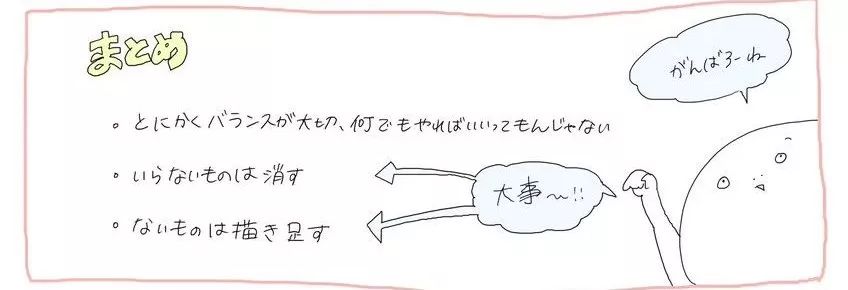 まとめ
がんばろーね
・とにかくバランスが大切、何でもやればいいってもんじゃない
・いらないものは消す
大事〜!!
・ないものは描き足す